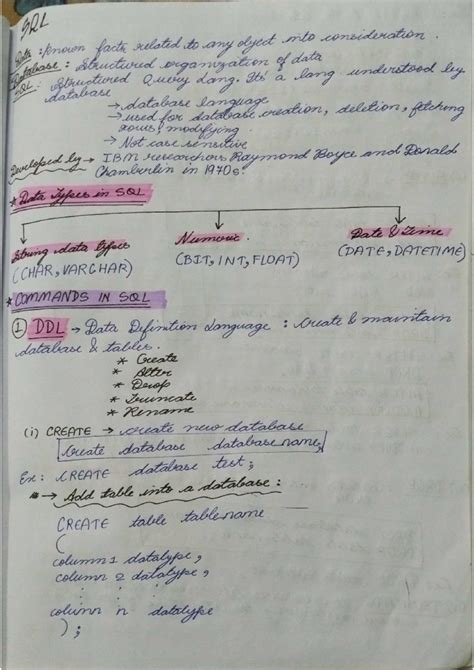 SQL
Data : Known facts related to any object into consideration.
Database : Structured organization of data
SQL : Structured Query Lang. Its a lang understood by
database
→ database language
→ used for database creation, deletion, fetching
rows, modifying.
→ Not case sensitive
Developed by → IBM researchers Raymond Boyce and Donald
Chamberlin in 1970s.
* Data Types in SQL
String data types
Numeric
Date & Time
(CHAR, VARCHAR)
(BIT, INT, FLOAT)
(DATE, DATETIME)
* COMMANDS IN SQL
① DDL → Data Definition Language : Create & maintain
database & tables.
* Create
* Alter
* Drop
* Truncate
* Rename
(i) CREATE → create new database
Create database database_name;
Ex: CREATE database test;
→ Add table into a database :
CREATE table table_name
(
column 1 datatype,
column 2 datatype,
: : :
column n datatype
);